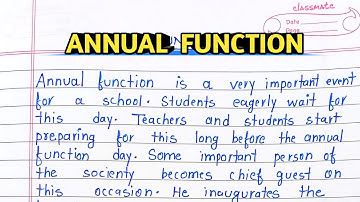 classmate
Date
Page
ANNUAL FUNCTION
Annual function is a very important event
for a school. Students eagerly wait for
this day. Teachers and students start
preparing for this long before the annual
function day. Some important person of
the socienty becomes chief guest on
this occasion. He inaugurates the